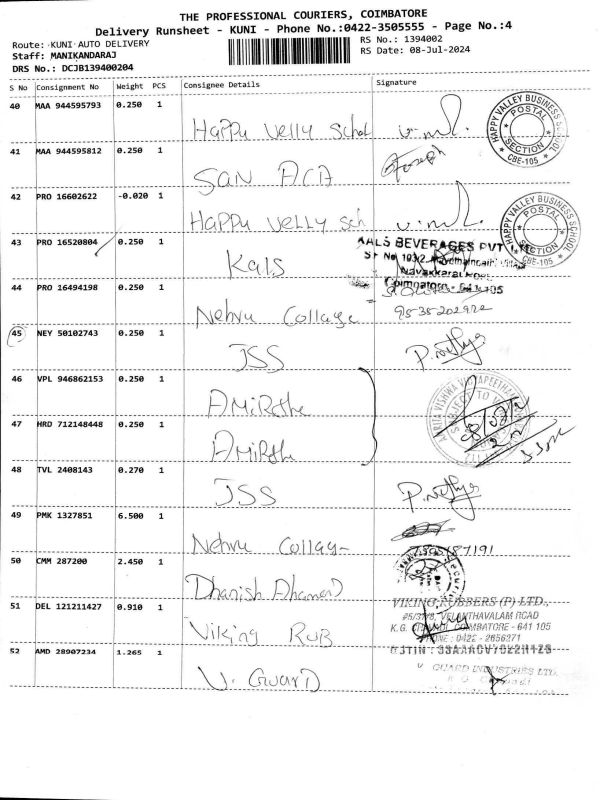 THE PROFESSIONAL COURIERS, COIMBATORE
Delivery Runsheet - KUNI - Phone No.:0422-3505555 - Page No.:4
Route: KUNI AUTO DELIVERY
RS No.: 1394002
Staff: MANIKANDARAJ
RS Date: 08-Jul-2024
DRS No.: DCJB139400204
S No Consignment No Weight PCS Consignee Details Signature
40 MAA 944595793 0.250 1
Happy Velly Schol
HAPPY VALLEY BUSINESS SCHOOL
POSTAL SECTION
CBE-105
41 MAA 944595812 0.250 1
SAN ACA
Joseph
42 PRO 16602622 -0.020 1
Happy Velly sch
HAPPY VALLEY BUSINESS SCHOOL
POSTAL SECTION
CBE-105
43 PRO 16520804 0.250 1
Kals
KALS BEVERAGES PVT
44 PRO 16494198 0.250 1
Coimbatore - 641 105
Nehru Collage
45 NEY 50102743 0.250 1
JSS
46 VPL 946862153 0.250 1
47 HRD 712148448 0.250 1
48 TVL 2408143 0.270 1
JSS
49 PMK 1327851 6.500 1
Nehru
50 CMM 287200 2.450 1
Dhanish Ahamed
51 DEL 121211427 0.910 1
Viking RUB
VIKING RUBBERS (P) LTD.,
VELANTHAVALAM ROAD
COIMBATORE - 641 105
PHONE : 0422 - 2656271
52 AMD 28907234 1.265 1
V. Guard
V GUARD INDUSTRIES LTD.